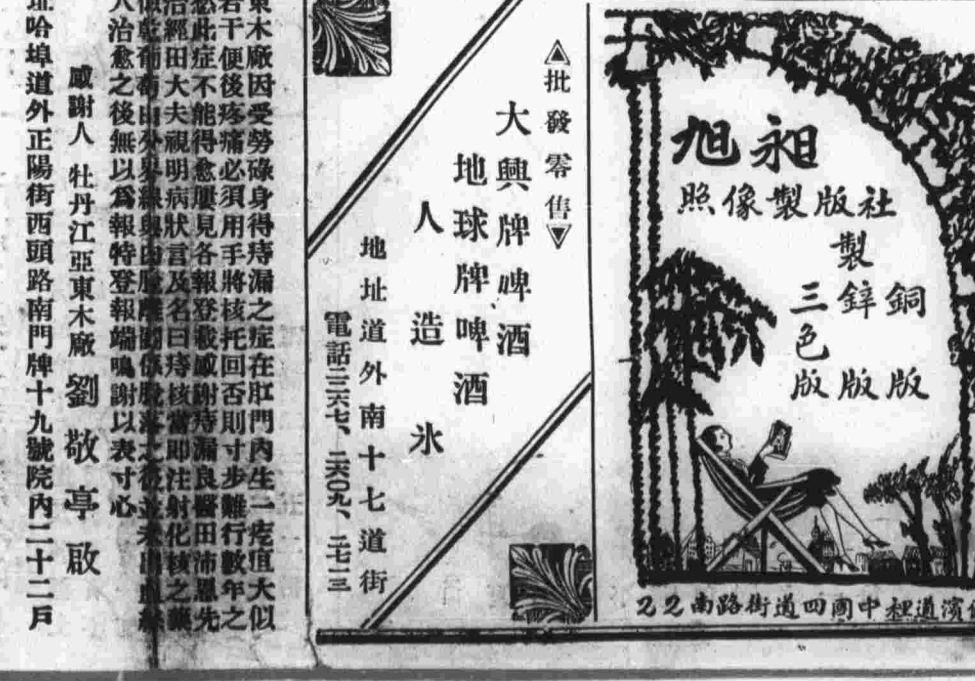 昶旭
社版製像照
製
銅版
鋅版
三色版
濱道裡中國四道街路南22
批發零售
大興牌啤酒
地球牌啤酒
人造氷
地址道外南十七道街
電話三六七、二六〇九、二七一三
東木廠因受勞碌身得痔漏之症在肛門內生一疙疸大似
若干便後疼痛必須用手將核托回否則寸步難行數年之
愁此症不能得愈屢見各報登載感謝痔漏良醫田沛恩先
治經田大夫視明病狀言及名曰痔核當即注射化核之藥
人治愈之後無以爲報特登報端鳴謝以表寸心
感謝人 牡丹江亞東木廠 劉敬亭啟
址哈埠道外正陽街西頭路南門牌十九號院內二十二戶